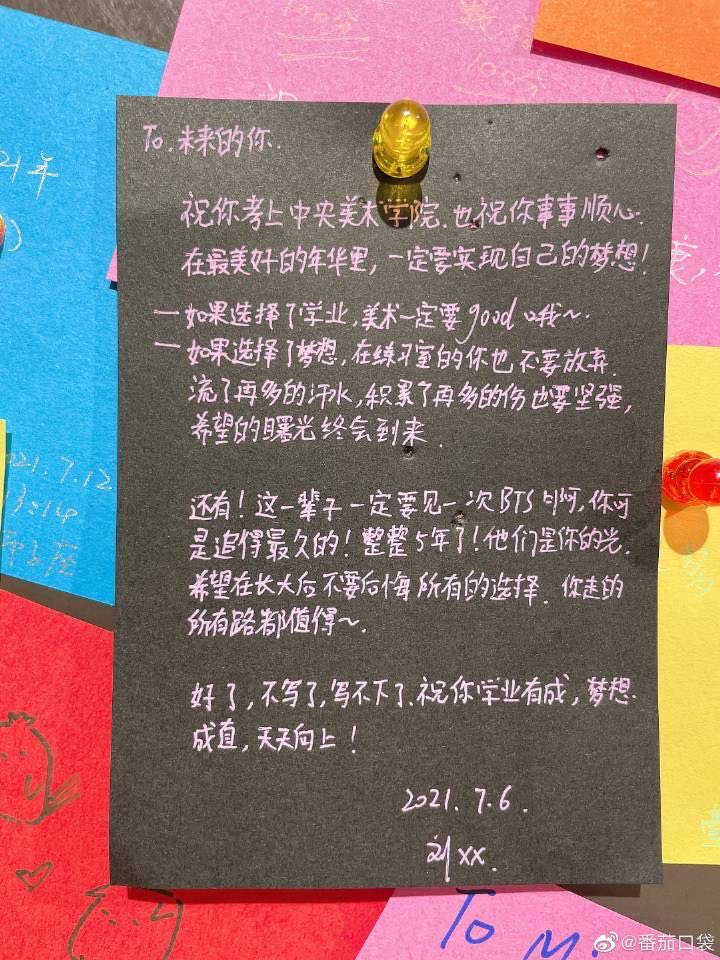 To. 未来的你.
祝你考上中央美术学院. 也祝你事事顺心.
在最美好的年华里, 一定要实现自己的梦想!
— 如果选择了学业, 美术一定要good哦~.
— 如果选择了梦想, 在练习室的你也不要放弃.
流了再多的汗水, 积累了再多的伤也要坚强,
希望的曙光终会到来.
还有! 这一辈子一定要见一次BTS啊, 你可
是追得最久的! 整整5年了! 他们是你的光.
希望在长大后不要后悔所有的选择. 你走的
所有路都值得~.
好了, 不写了, 写不下了. 祝你学业有成, 梦想
成真, 天天向上!
2021. 7.6.
刘xx.
100分
100分
21年
2021.7.12
13:14
To M.
@番茄口袋